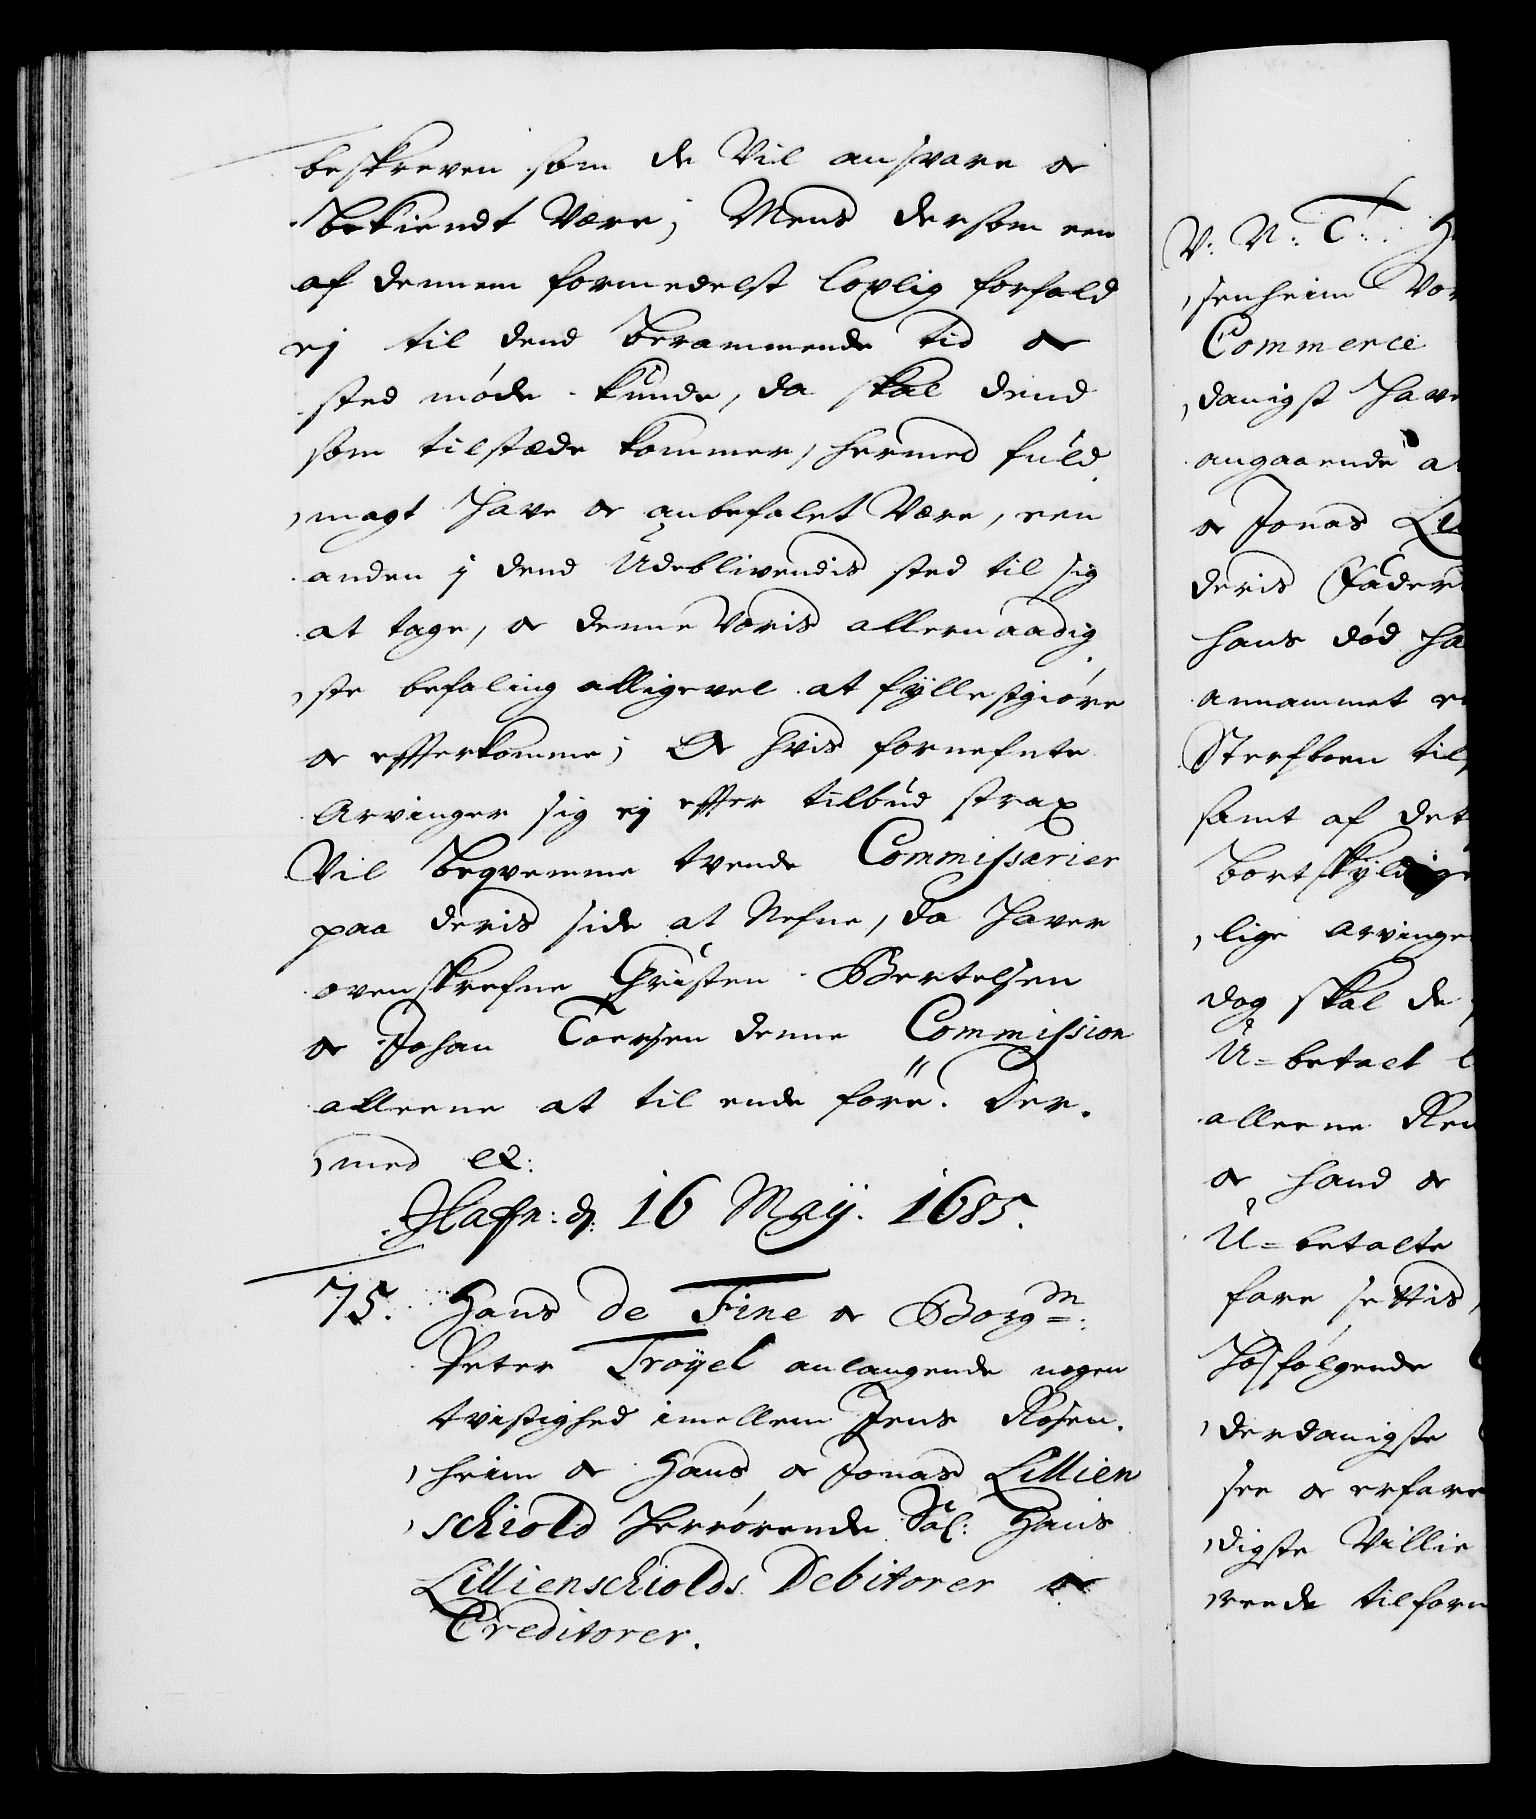 beskreven som de Vil ansvare og
bekiendt Være; Mens dersom een
af dennem formedelst lovlig forfald
ej til dend berammende tid og
sted møde kunde, da skal dend
som tilstæde kommer, hermed fuld,
magt have og anbefalet Være, een
anden i dend Udeblivendis sted til sig
at tage, og denne Voris allernaadig,
ste befaling alligevel at fyllestgiøre
og efferkomme; Og hvis fornefnte
Arvinger sig ej effer tilbud strax
Vil beqvemme tvende Commissarier
paa deris side at Nefne, da haver
ovenskrefne Christen Bertelsen
og Johan Toersen denne Commission
alleene at til ende före. Der,
med etc:
Hafn: d: 16 Maij. 1685.
75. Hans de Fine og Borgm:
Peter Tröyel anlangende nogen
tvistighed imellem Jens Rosen,
heim og Hans og Jonas Lillien
schiold herrørende Sal: Hans
Lillienschiolds Debitorer og
Creditorer.
V: V: T:
senheim Vor
Commerce
danigst have
angaaende
og Jonas
deris Fader
hans død
annammet
Sterfboen til
samt af det
bortskyldige
lige Arvinge
dog skal de
U=betalt
alleene
og hand og
U=betalte
fare settis
hosfølgende
derdanigste
see og erfare
digste Villie
reede tilforn